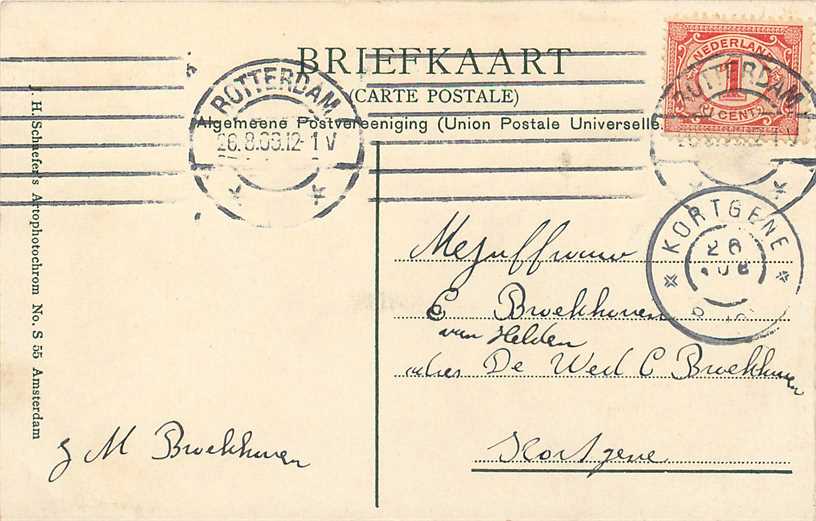 BRIEFKAART
(CARTE POSTALE)
Algemeene Postvereeniging (Union Postale Universelle.
NEDERLAND
1
CENT
ROTTERDAM
26.8.09.12-1V
ROTTERDAM
KORTGENE
26
AUG
J. H. Schaefer's Artophotochrom No. S 55 Amsterdam
Mejuffrouw
C Broekhoven
van Helden
adres De Wed C Broekhoven
Kortgene
M Broekhoven